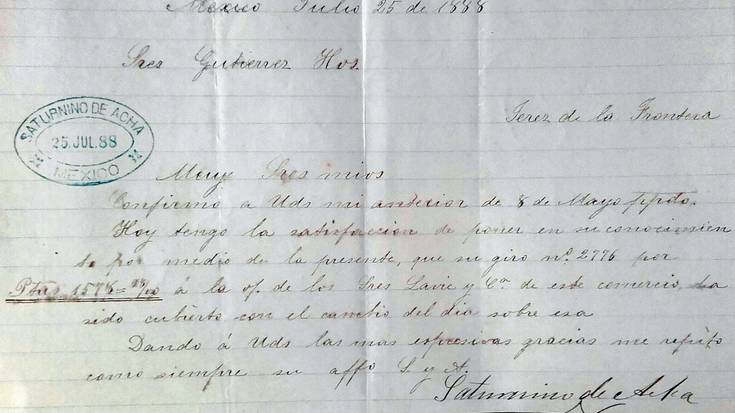 Mexico Julio 25 de 1888
Sres Gutierrez Hos.
SATURNINO DE ACHA
25. JUL. 88
MEXICO
Jerez de la Frontera
Muy Sres mios
Confirmo a Uds mi anterior de 8 de Mayo ppdo.
Hoy tengo la satisfacion de poner en su conocimien
to por medio de la presente, que su giro nº. 2776 por
Ptas. 1578= á la o/. de los Sres Lavie y Cª de este comercio, ha
sido cubierto con el cambio del dia sobre esa
Dando á Uds las mas espresivas gracias me repito
como siempre su affo S. y A.
Saturnino de Acha